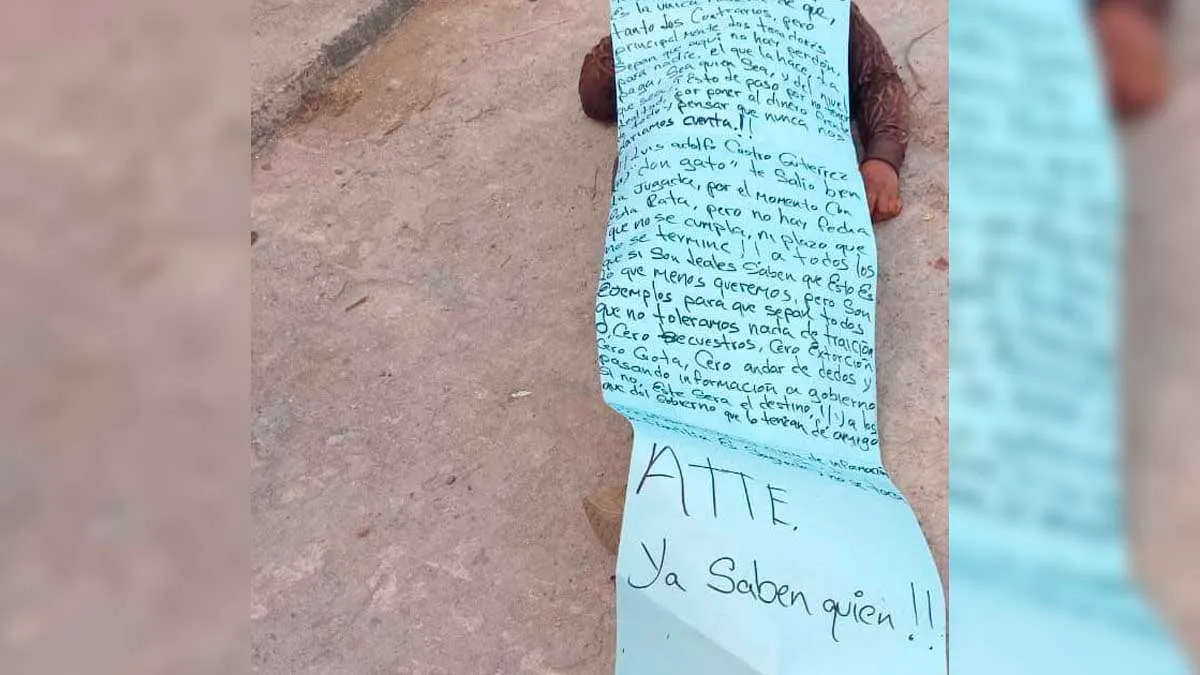 es la unica de que,
tanto dos Contrarios, pero
principalmente dos traidores
Sepan que aqui no hay perdón,
para nadie, el que la hace, la
paga, Sea quien Sea, y del nivel
que sea, Esto de paso por no tener
por poner al dinero
pensar que nunca nos
dariamos cuenta!!
Luis adolfo Castro Gutierrez
"don gato" te Salio bien
la Jugada, por el momento Con
esta Rata, pero no hay fecha
que no se cumpla, ni plazo que
no se termine!! a todos los
que si Son leales Saben que Esto Es
lo que menos queremos, pero Son
Ejemplos para que sepan todos
que no toleramos nada de traición
Cero Secuestros, Cero Extorción
Cero Gota, Cero andar de dedos y
pasando información a gobierno
Si no, Este Sera el destino!! Ya los
que del Gobierno que lo tenian de amigo
de información
ATTE.
Ya Saben quien!!